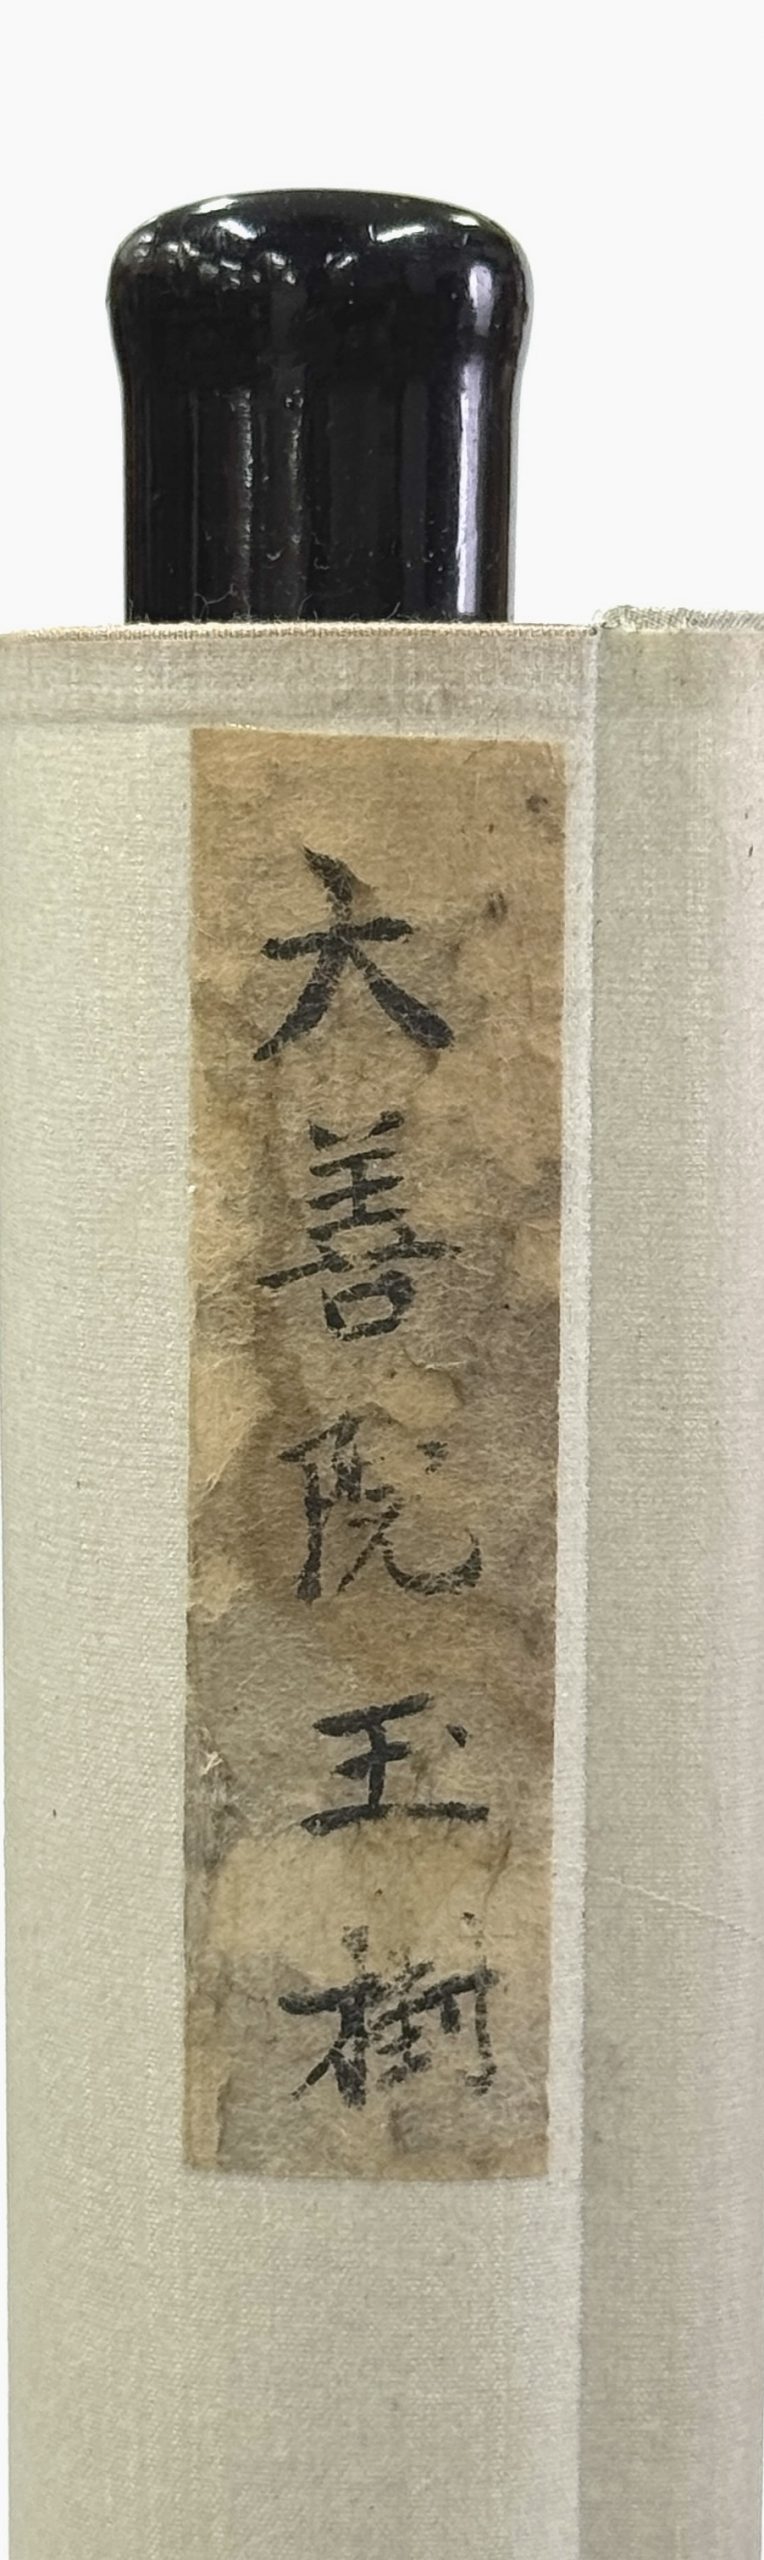 大善院玉樹